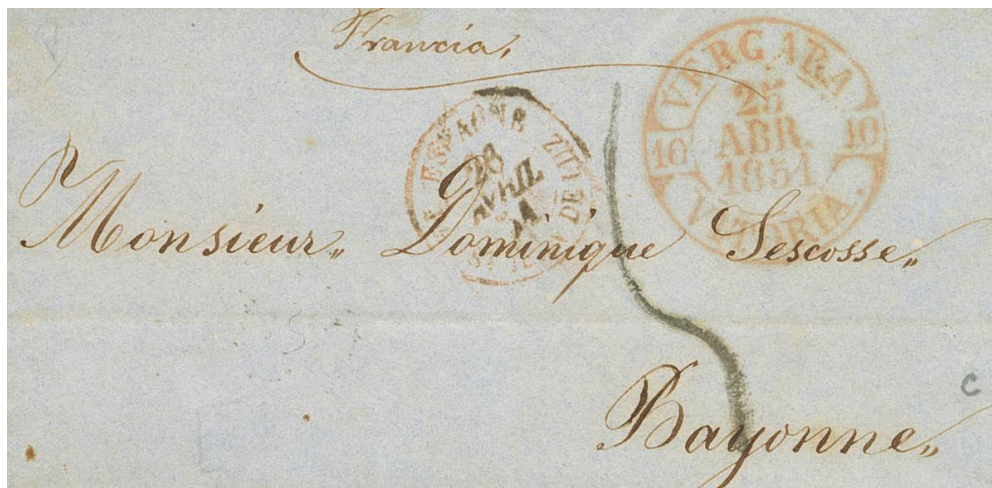 Francia,
VERGARA
25
ABR.
1851
10 10
VITORIA.
ESPAGNE
28
AVRIL
DE LUZ
Monsieur„ Dominique Sescosse„
Bayonne„
C